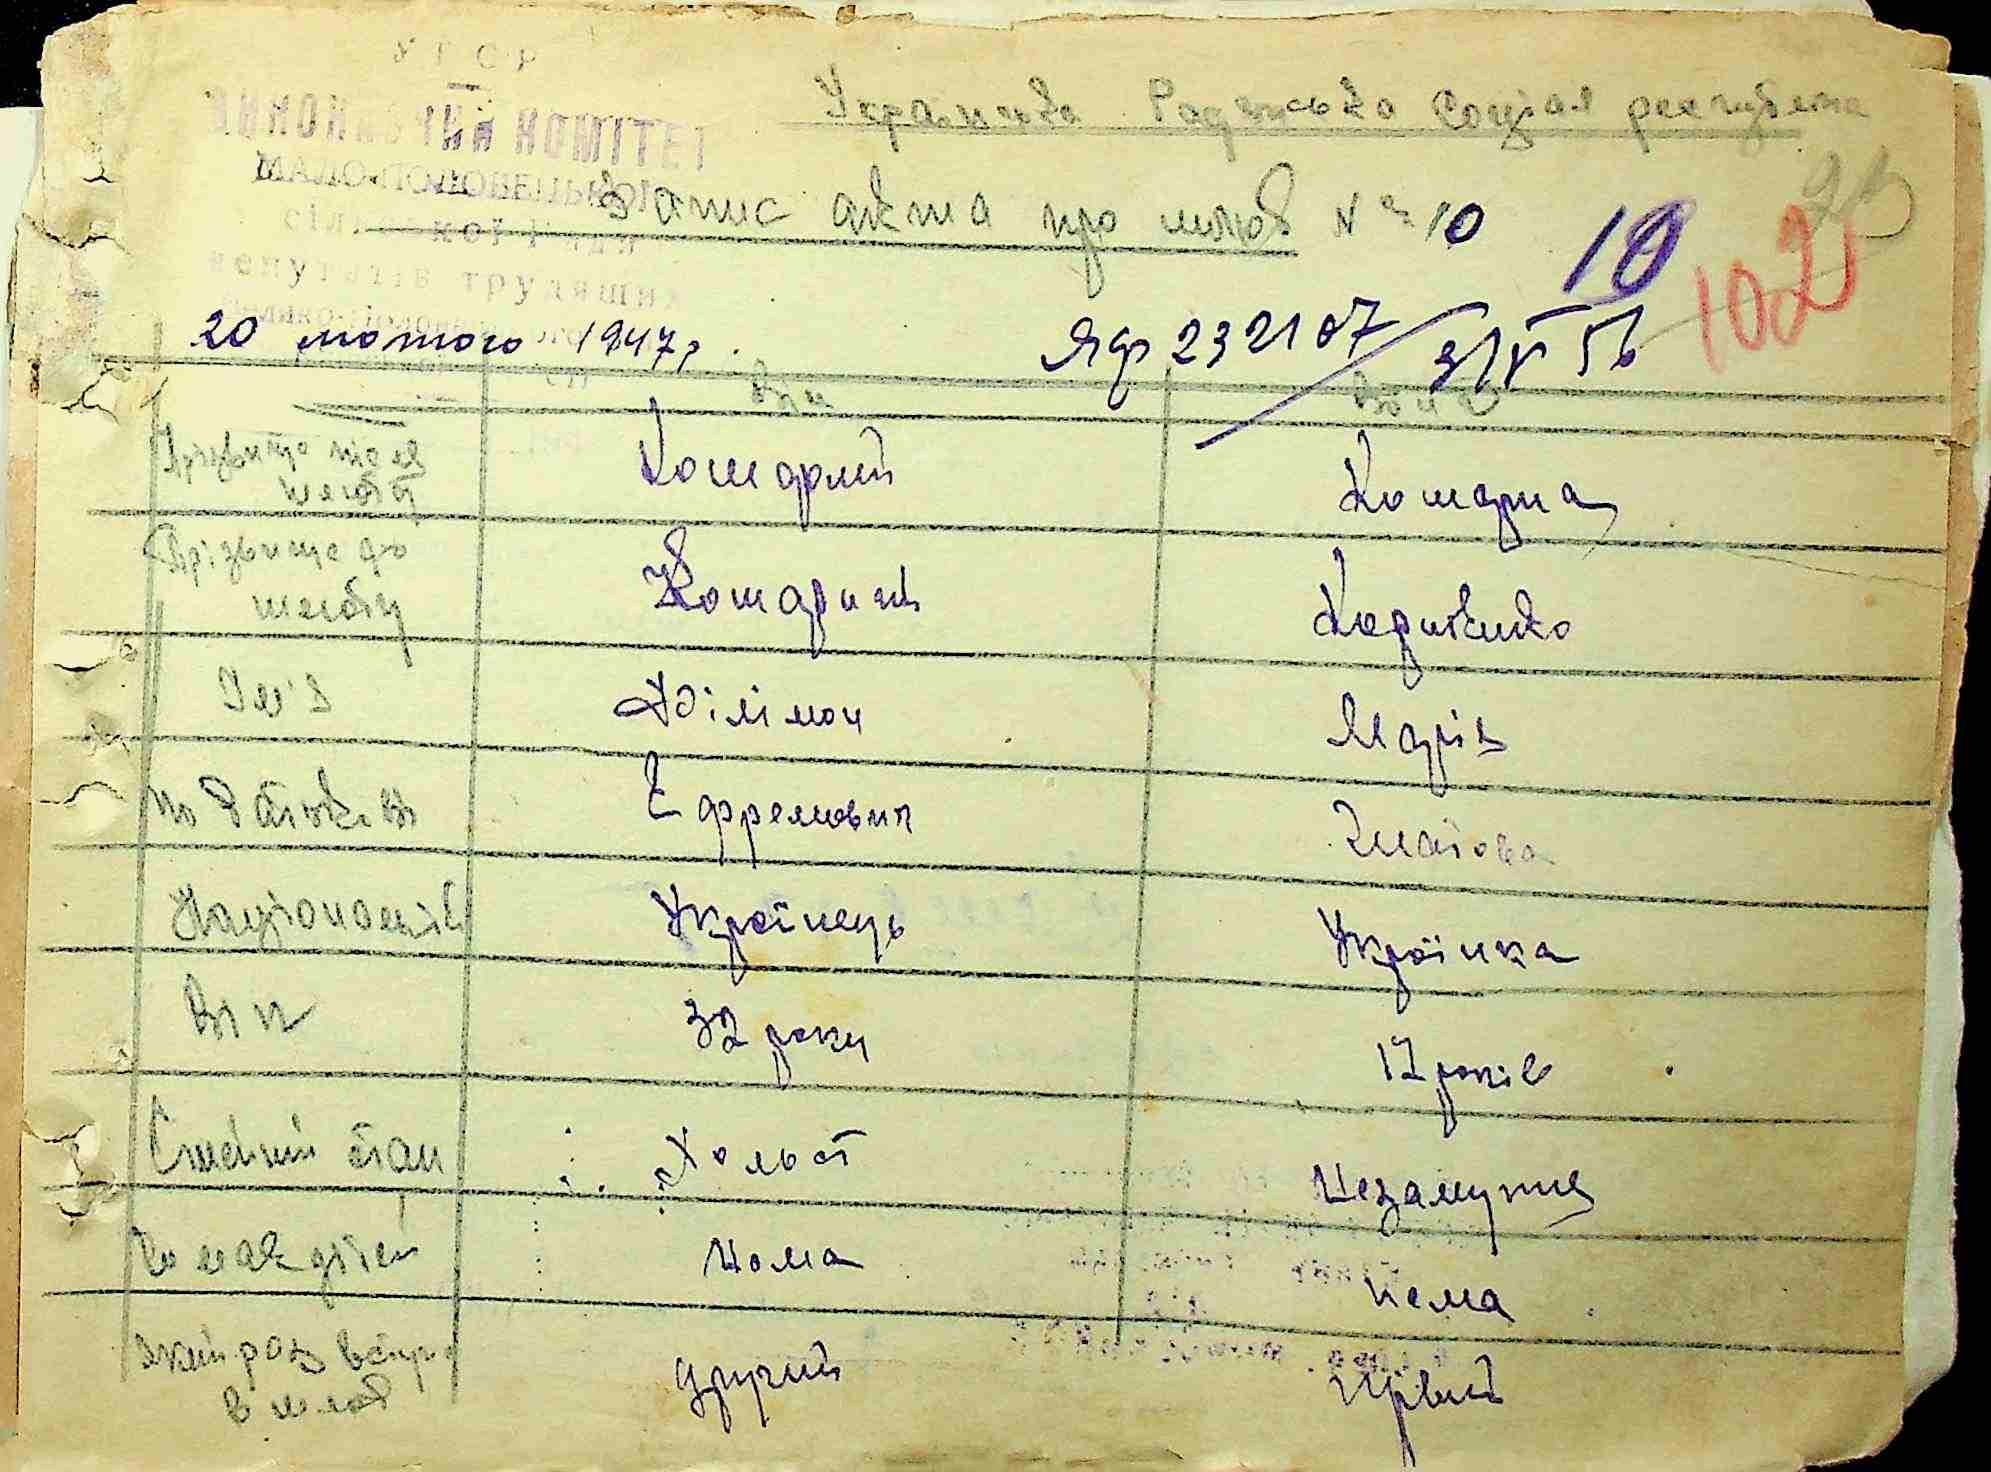 УРСР
Українська Радянська Соціал республіка
ВИКОНАВЧИЙ КОМІТЕТ
МАЛО-ПОЛОВЕЦЬКОЇ
сільської Ради
депутатів трудящих
Запис акта про шлюб № 10
10
102
20 лютого 1947 р.
ЯФ 232107 31/V 56
Він Вона
Прізвище після шлюбу Кошарний Кошарна
Прізвище до шлюбу Кошарний
Ім'я Філімон Марія
по батькові Ефремович Гнатова
Національність Українець Українка
Вік 32 роки 17 років
Сімейний стан Холост Незамужня
Чи має дітей Нема Нема
який раз вступа в шлюб другий Первий